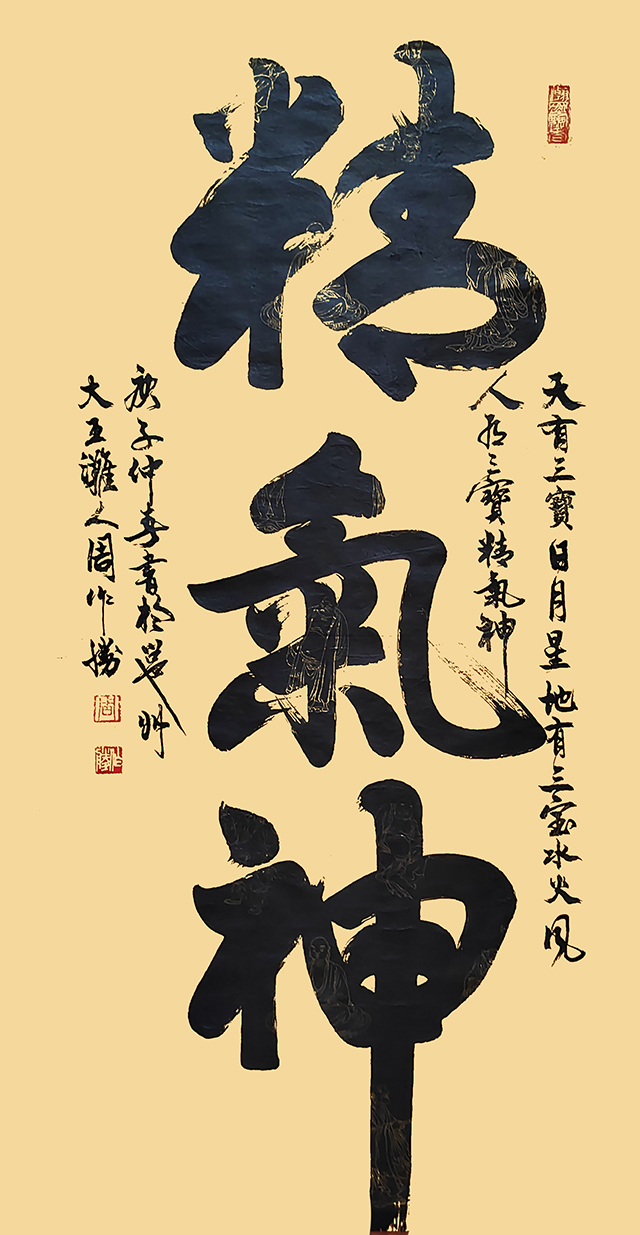 精氣神
天有三寶日月星地有三宝水火风
人有三寶精氣神
庚子仲春書於州
大王灘人周作勝
周